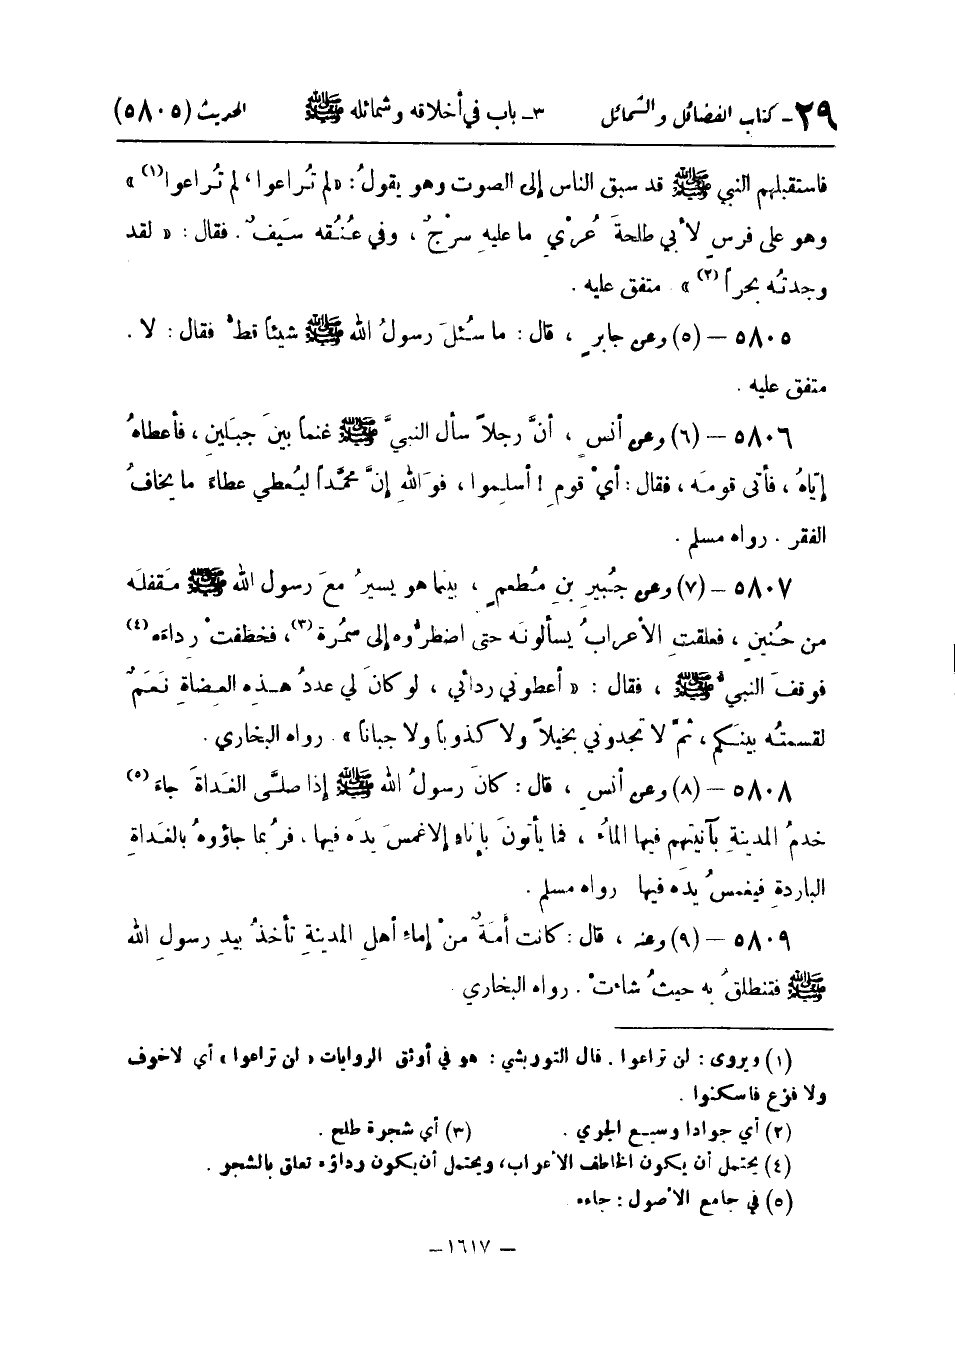 ٢٩ـ كتاب الفضائل والشمائل ٣ـ باب في أخلاقه وشمائله ﷺ الحديث (٥٨٠٥)
فاستقبلهم النبي ﷺ قد سبق الناس إلى الصوت وهو يقولُ: «لم تُراعوا، لم تُراعوا(١)»
وهو على فرسٍ لأبي طلحةَ عُرْيٍ ما عليه سرْجٌ، وفي عُنُقه سَيفٌ. فقال: «لقد
وجدتُه بحراً(٢)». متفق عليه.
٥٨٠٥ – (٥) وعن جابرٍ، قال: ما سُئلَ رسولُ الله ﷺ شيئاً قطُّ فقال: لا.
متفق عليه.
٥٨٠٦ – (٦) وعن أنسٍ، أنَّ رجلاً سأل النبيَّ ﷺ غنماً بينَ جبَلينِ، فأعطاهُ
إيّاهُ، فأتى قومَه، فقال: أيْ قومِ! أسلِموا، فوَاللهِ إنَّ محمَّداً ليُعطي عطاءً ما يخافُ
الفقر. رواه مسلم.
٥٨٠٧ – (٧) وعن جُبيرِ بنِ مُطعمٍ، بينما هو يسيرُ معَ رسول الله ﷺ مَقفلَه
من حُنينٍ، فعلقتِ الأعرابُ يسألونَه حتى اضطرُّوه إلى سمُرة(٣)، فخطفتْ رداءَه(٤)
فوقفَ النبيُّ ﷺ، فقال: «أعطوني ردائي، لو كانَ لي عددُ هذهِ العِضاةِ نَعَمٌ
لقسمتُه بينَكم، ثمَّ لا تجدوني بخيلاً ولا كذوباً ولا جباناً». رواه البخاري.
٥٨٠٨ – (٨) وعن أنسٍ، قال: كانَ رسولُ الله ﷺ إذا صلَّى الغَداةَ جاءَ(٥)
خدمُ المدينةِ بآنيتِهم فيها الماءُ، فما يأتونَ بإناءٍ إلا غمسَ يدَه فيها، فرُبما جاؤوهُ بالغَداةِ
الباردةِ فيغمسُ يدَه فيها رواه مسلم.
٥٨٠٩ – (٩) وعنه، قال: كانت أمَةٌ منْ إماءِ أهلِ المدينةِ تأخذُ بيدِ رسولِ الله
ﷺ فتنطلقُ به حيثُ شاءتْ. رواه البخاري.
(١) ويروى: لن تراعوا. قال التوربشي: هو في أوثق الروايات «لن تراعوا» أي لا خوف
ولا فزع فاسكنوا.
(٢) أي جوادا وسيع الجري. (٣) أي شجرة طلح.
(٤) يحتمل أن يكون الخاطف الأعراب، ويحتمل أن يكون رداؤه تعلق بالشجر.
(٥) في جامع الأصول: جاءه
– ١٦١٧ –